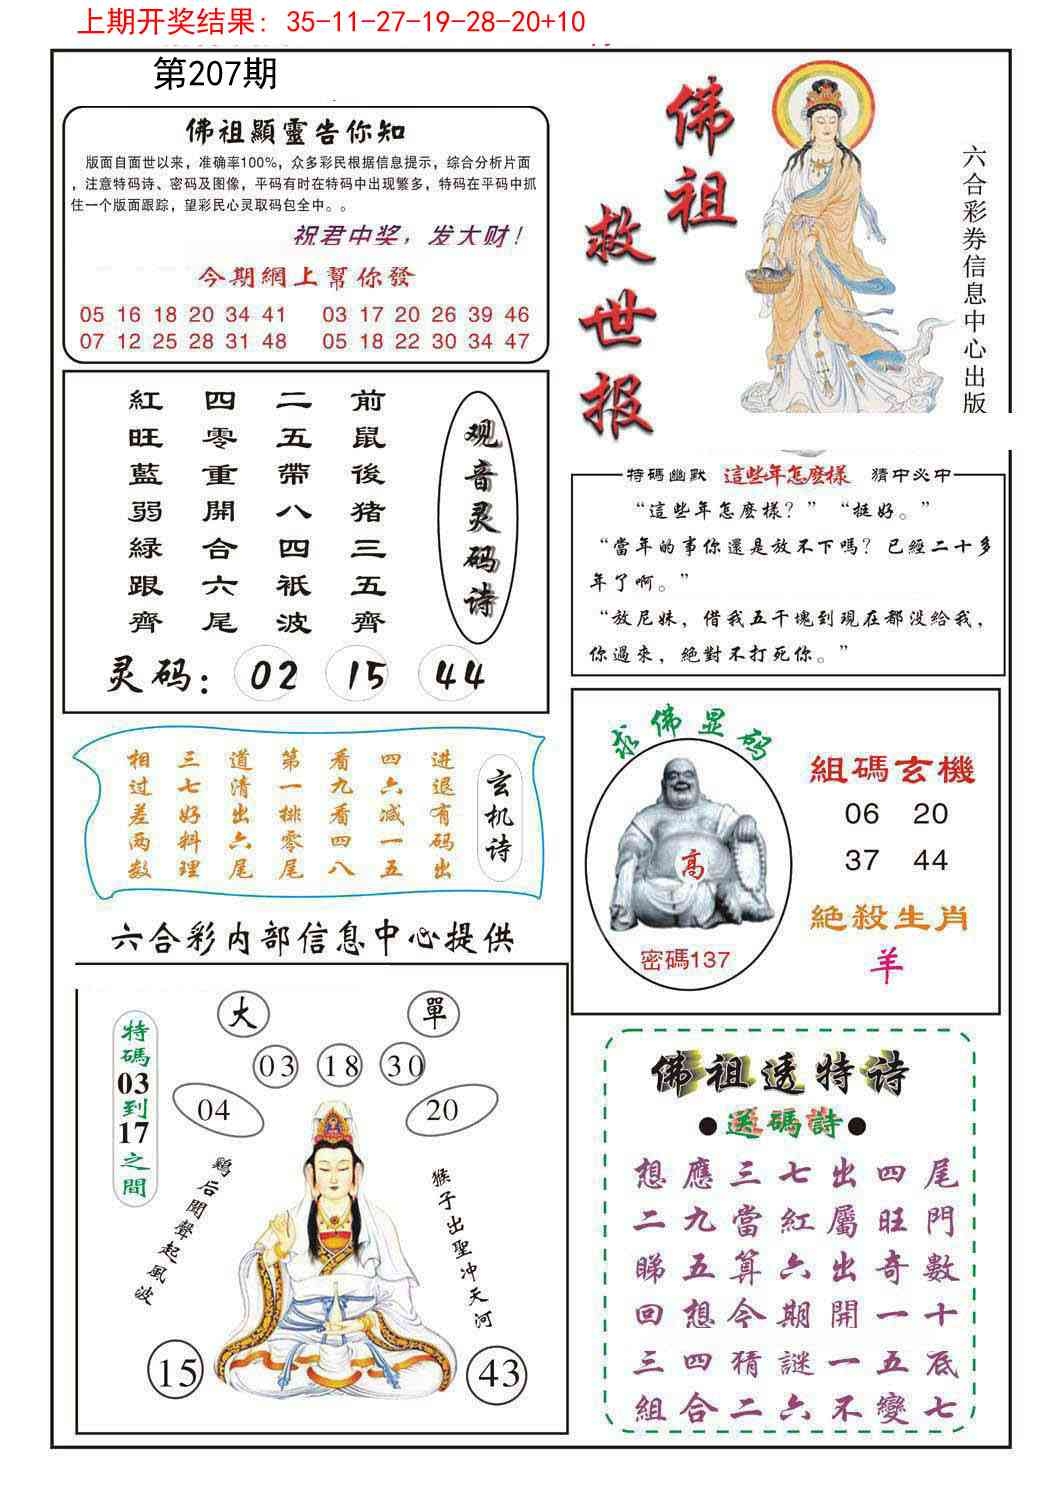 上期开奖结果: 35-11-27-19-28-20+10
第207期
佛祖顯靈告你知
版面自面世以来，准确率100%，众多彩民根据信息提示，综合分析片面
，注意特码诗、密码及图像，平码有时在特码中出现繁多，特码在平码中抓
住一个版面跟踪，望彩民心灵取码包全中。。
祝君中奖，发大财！
今期網上幫你發
05 16 18 20 34 41 03 17 20 26 39 46
07 12 25 28 31 48 05 18 22 30 34 47
佛祖
救世报
六合彩券信息中心出版
观音灵码诗
前鼠後猪三五齊
二五帶八四祇波
四零重開合六尾
紅旺藍弱緑跟齊
灵码: 02 15 44
特碼幽默 這些年怎麼樣 猜中必中
“這些年怎麽樣？”“挺好。”
“當年的事你還是放不下嗎？已經二十多
年了啊。”
“放尼妹，借我五千塊到現在都没給我，
你過來，絶對不打死你。”
玄机诗
进退有码出
四六减一五
看九看四八
第一排零尾
道清出六尾
三七好料理
相过差两数
六合彩内部信息中心提供
求佛显码
高
密碼137
組碼玄機
06 20
37 44
絶殺生肖
羊
特碼03到17之間
大 單
03 18 30
04 20
鷄后聞聲起風波
猴子出聖冲天河
15 43
佛祖透特诗
●送碼詩●
想應三七出四尾
二九當紅屬旺門
睇五算六出奇數
回想今期開一十
三四猜謎一五底
組合二六不變七